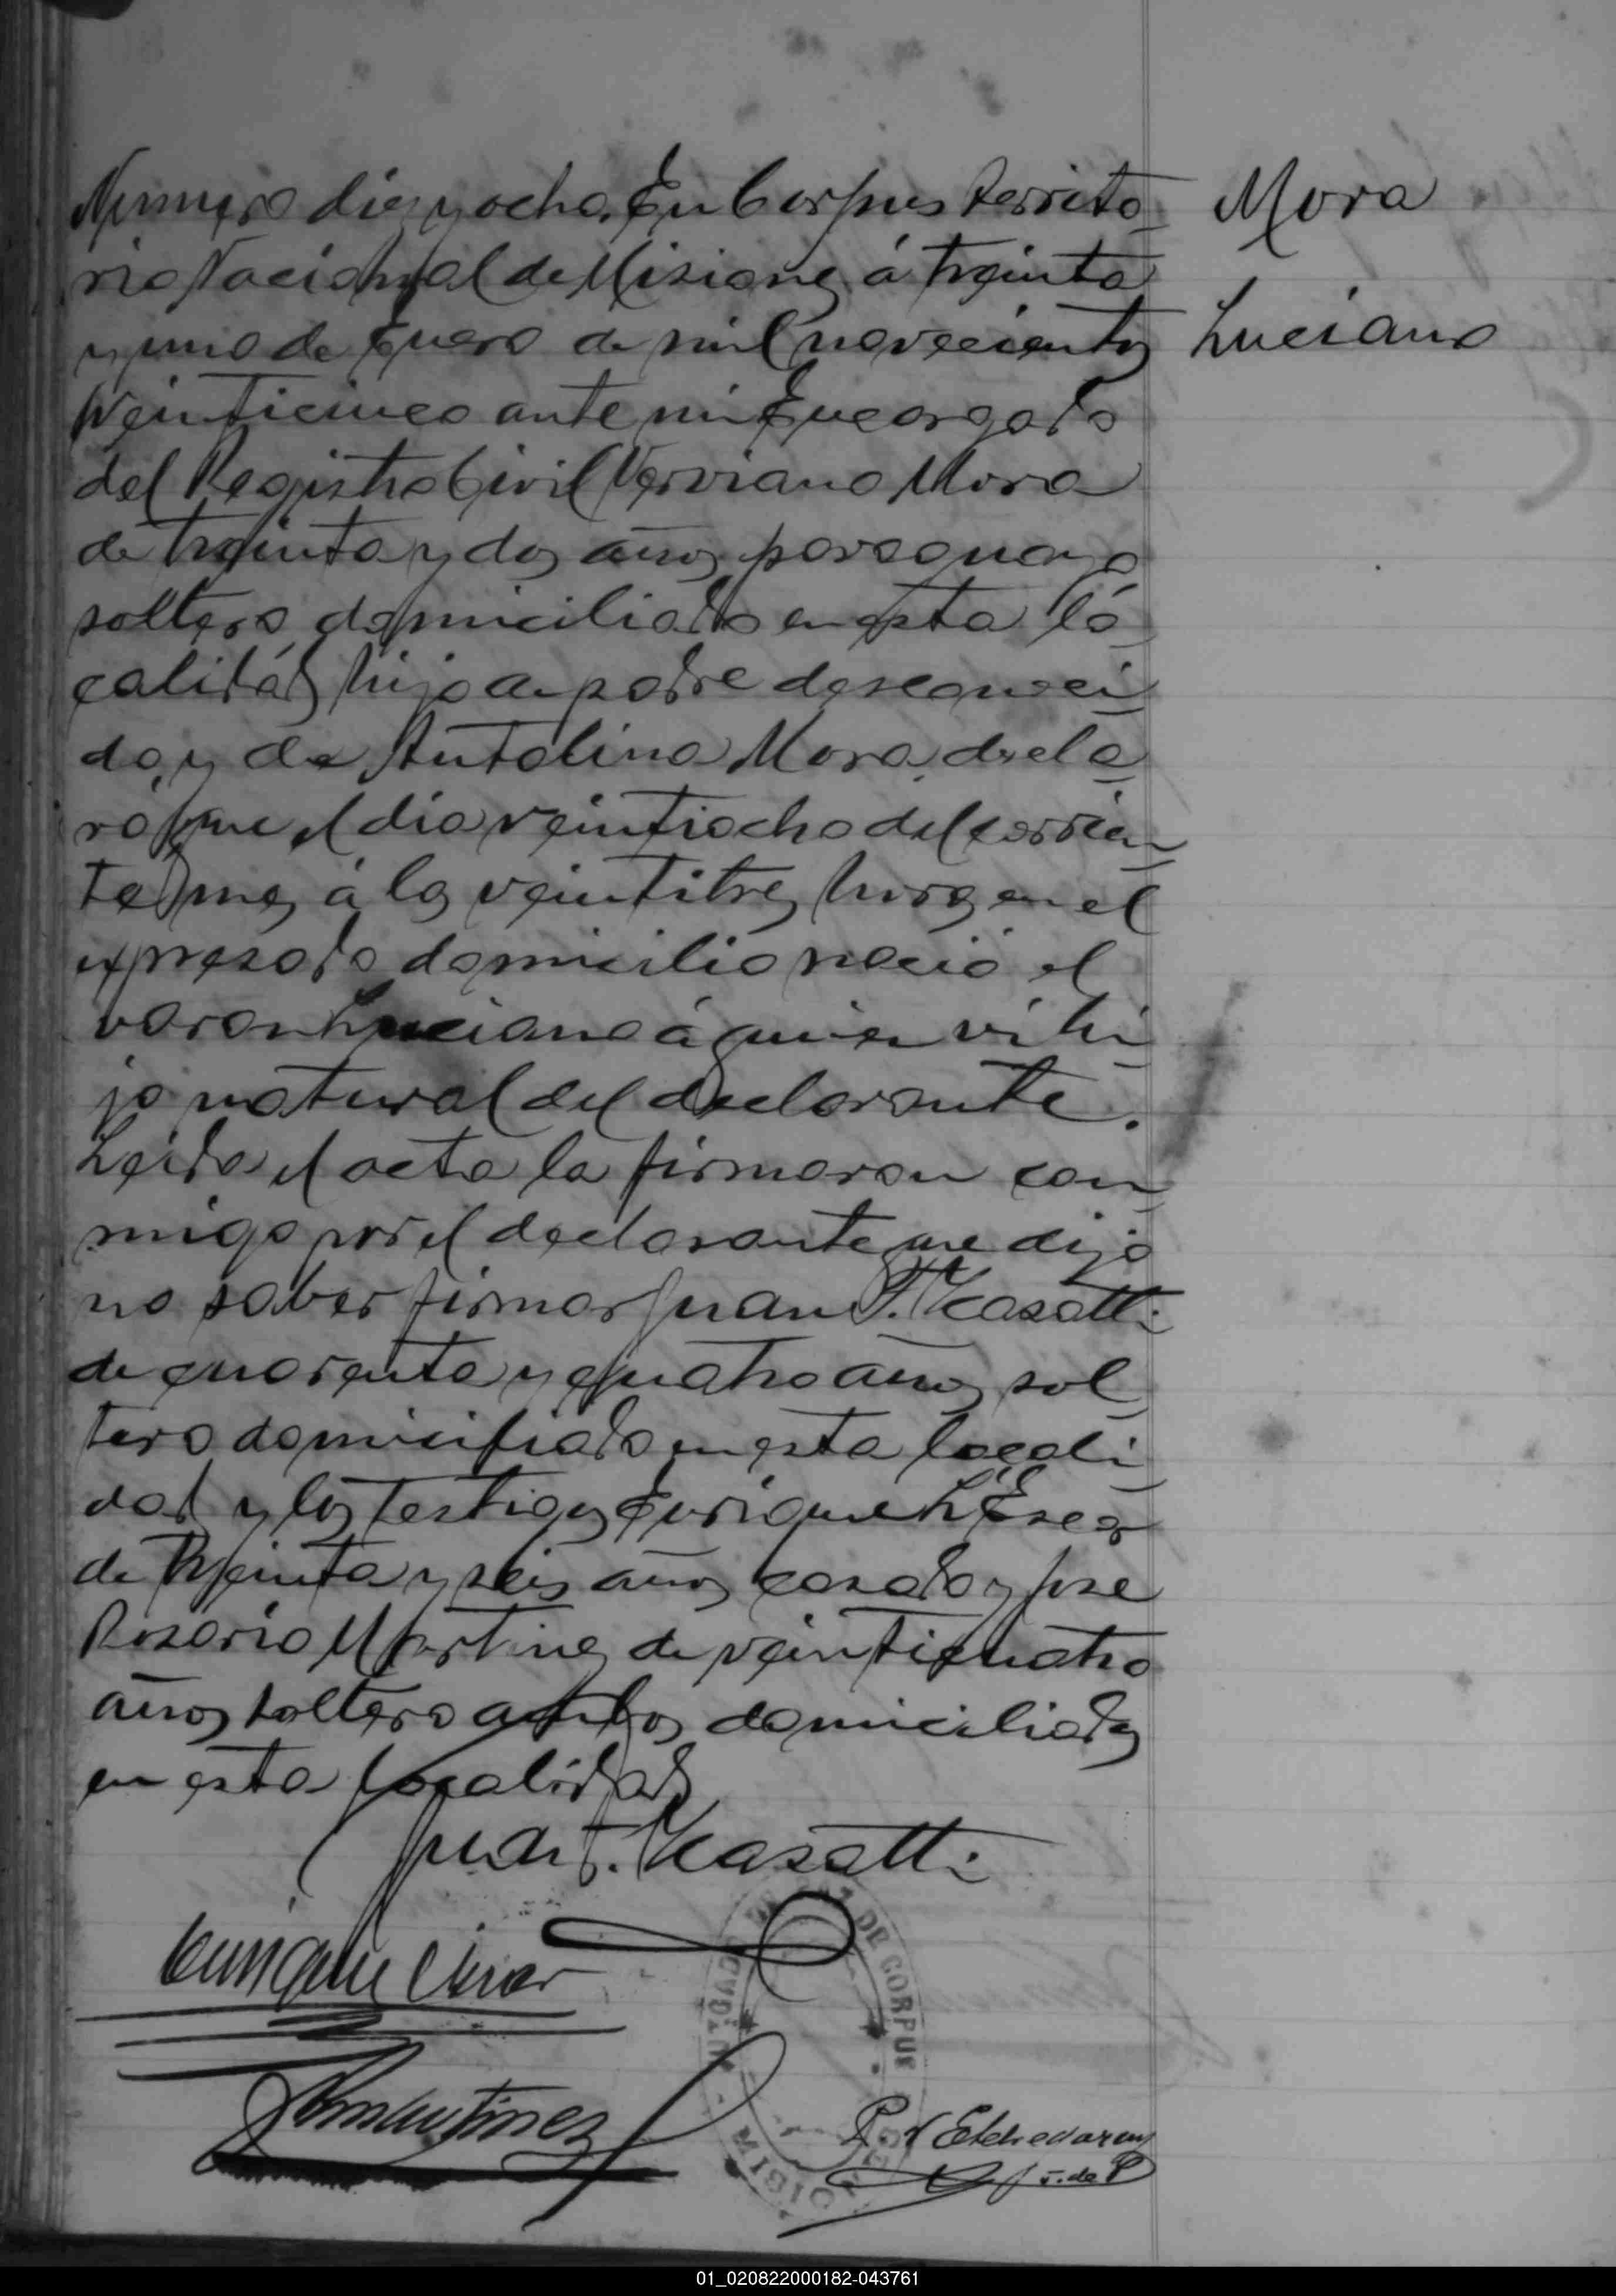 Numero diez y ocho. En Corpus territo-
rio Nacional de Misiones á treinta
y uno de Enero de mil novecientos
veinticinco ante mi Encargado
del Registro Civil Verviano Mora
de treinta y dos años paraguayo
soltero domiciliado en esta lo-
calidád hijo de padre desconoci-
do, y de Antolina Mora, decla-
ró que el dia veintiocho del corrien-
te mes á las veintitres horas en el
expresado domicilio nació el
varon Luciano á quien vi hi-
jo natural del declarante.
Leida el acta la firmaron con-
migo por el declarante que dijo
no saber firmar Juan T. Casatti
de cuarenta y cuatro años sol-
tero domiciliado en esta locali-
dad y los testigos Enrique L'Escar
de treinta y seis años casado y José
Rosario Martinez de veinticuatro
años soltero ambos domiciliados
en esta localidad
Mora
Luciano
Juan T. Casatti
Enrique
Martinez
DE CORPUS
P. V Etchedareny
J. de P
01_020822000182-043761